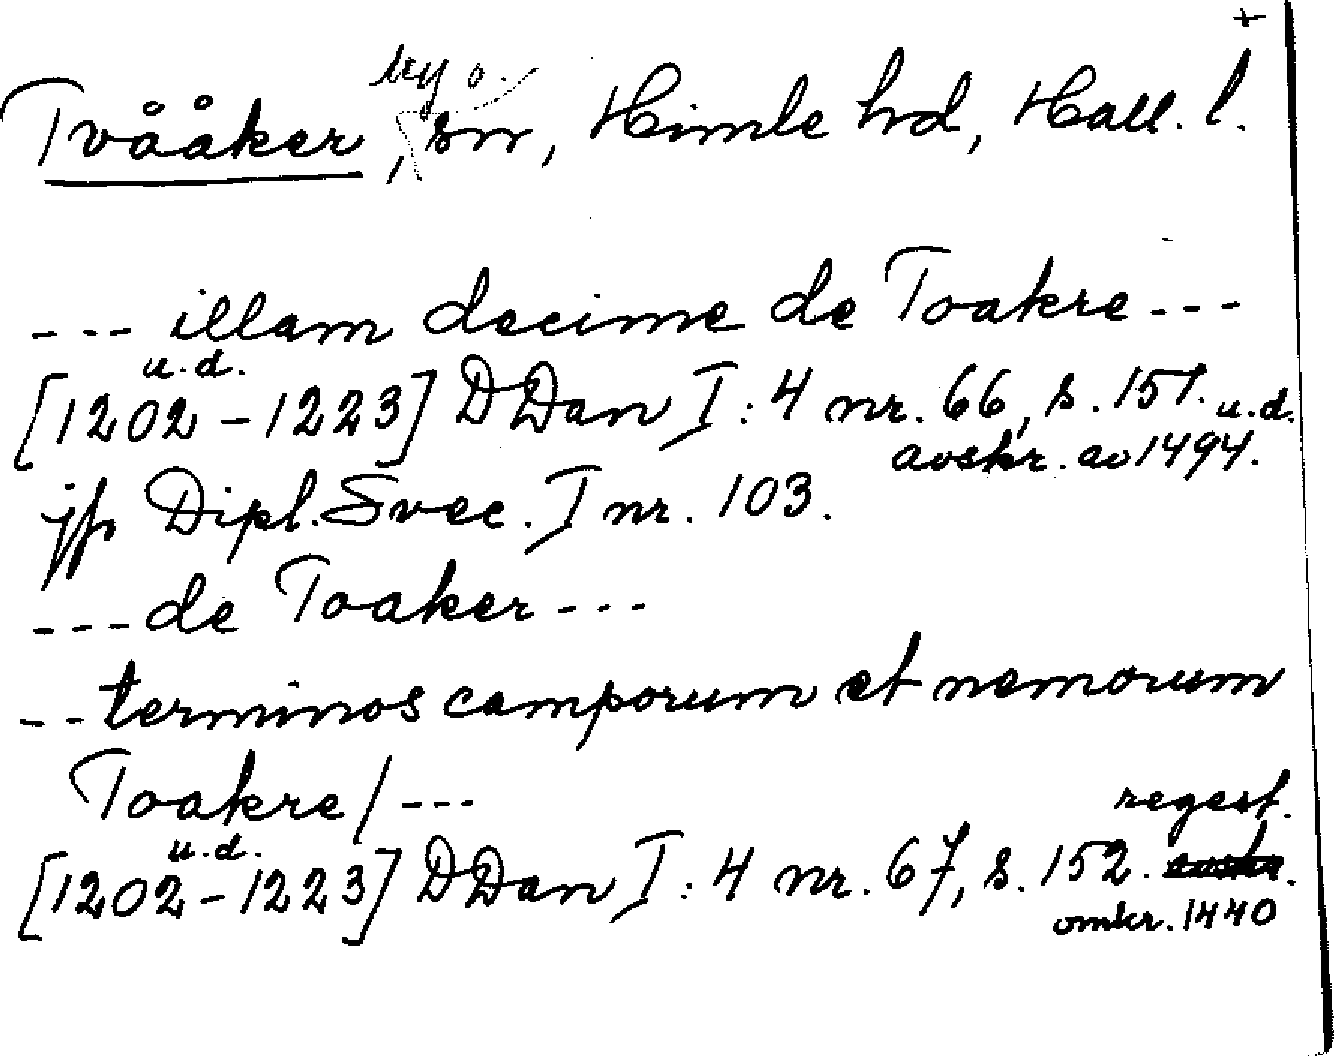 +
by o.
Tvååker, sn, Himle hd, Hall. l.
--- illam decime de Toakre ---
u.d.
[1202-1223] DDan I:4 nr. 66, s. 151. u.d.
avskr. av 1494.
jfr Dipl. Svec. I nr. 103.
--- de Toaker ---
-- terminos camporum et nemorum
Toakre/ ---
regest.
u.d.
[1202-1223] DDan I:4 nr. 67, s. 152. avskr.
omkr. 1440